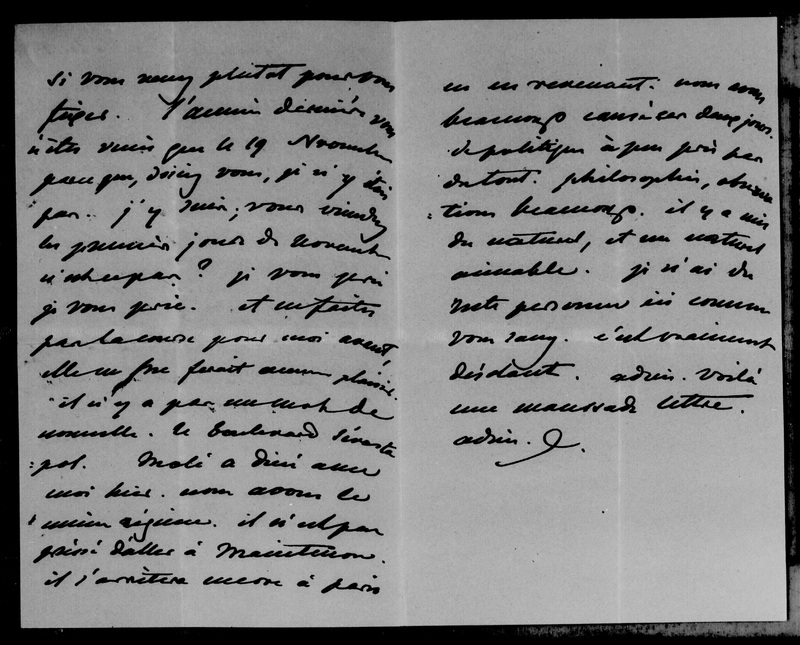 si vous venez plutôt pour vous
fixer. l'année dernière vous
n'êtes venus que le 19 Novembre
parce que, vous, je n'y étais
pas. j'y suis; vous viendrez
les premiers jours de novembre
n'est-ce pas? je vous prie
je vous prie. et ne faites
pas la course pour moi avant,
elle ne me ferait aucun plaisir.
il n'y a pas un mot de
nouvelle. le boulevard Sévasto
:pol. Molé a diné avec
moi hier. nous avons le
même régime. il n'est pas
pressé d'aller à Maintenon.
il s'arrêtera encore à paris
en en revenant. nous avons
beaucoup causé ces deux jours.
de politique à peu près pas
du tout. philosophie, observa
:tions beaucoup. il y a mis
du naturel, et un naturel
aimable. je n'ai du
reste personne ici comme
vous savez. c'est vraiment
désolant. adieu. voilà
une maussade lettre.
adieu.